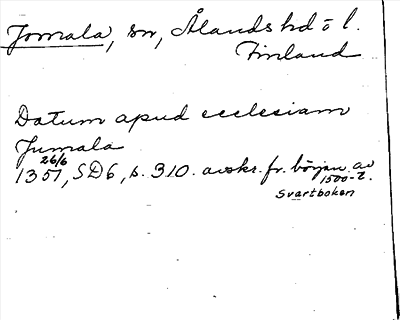 Jomala, sn, Ålands hd o l.
Finland
Datum apud ecclesiam
Jumala
26/6
1357, SD6, s. 310. avskr. fr. början av
1500-t.
Svartboken